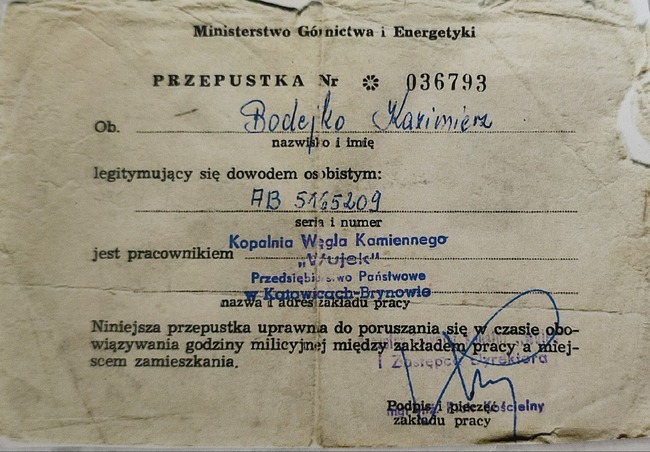 Ministerstwo Górnictwa i Energetyki
PRZEPUSTKA Nr ✻ 036793
Ob. Bodejko Kazimierz
nazwisko i imię
legitymujący się dowodem osobistym:
AB 5165209
seria i numer
jest pracownikiem Kopalnia Węgla Kamiennego
„Wujek”
Przedsiębiorstwo Państwowe
w Katowicach-Brynowie
nazwa i adres zakładu pracy
Niniejsza przepustka uprawnia do poruszania się w czasie obo-
wiązywania godziny milicyjnej między zakładem pracy a miej-
scem zamieszkania.
I Zastępca Dyrektora
Podpis i pieczęć
Kościelny
zakładu pracy